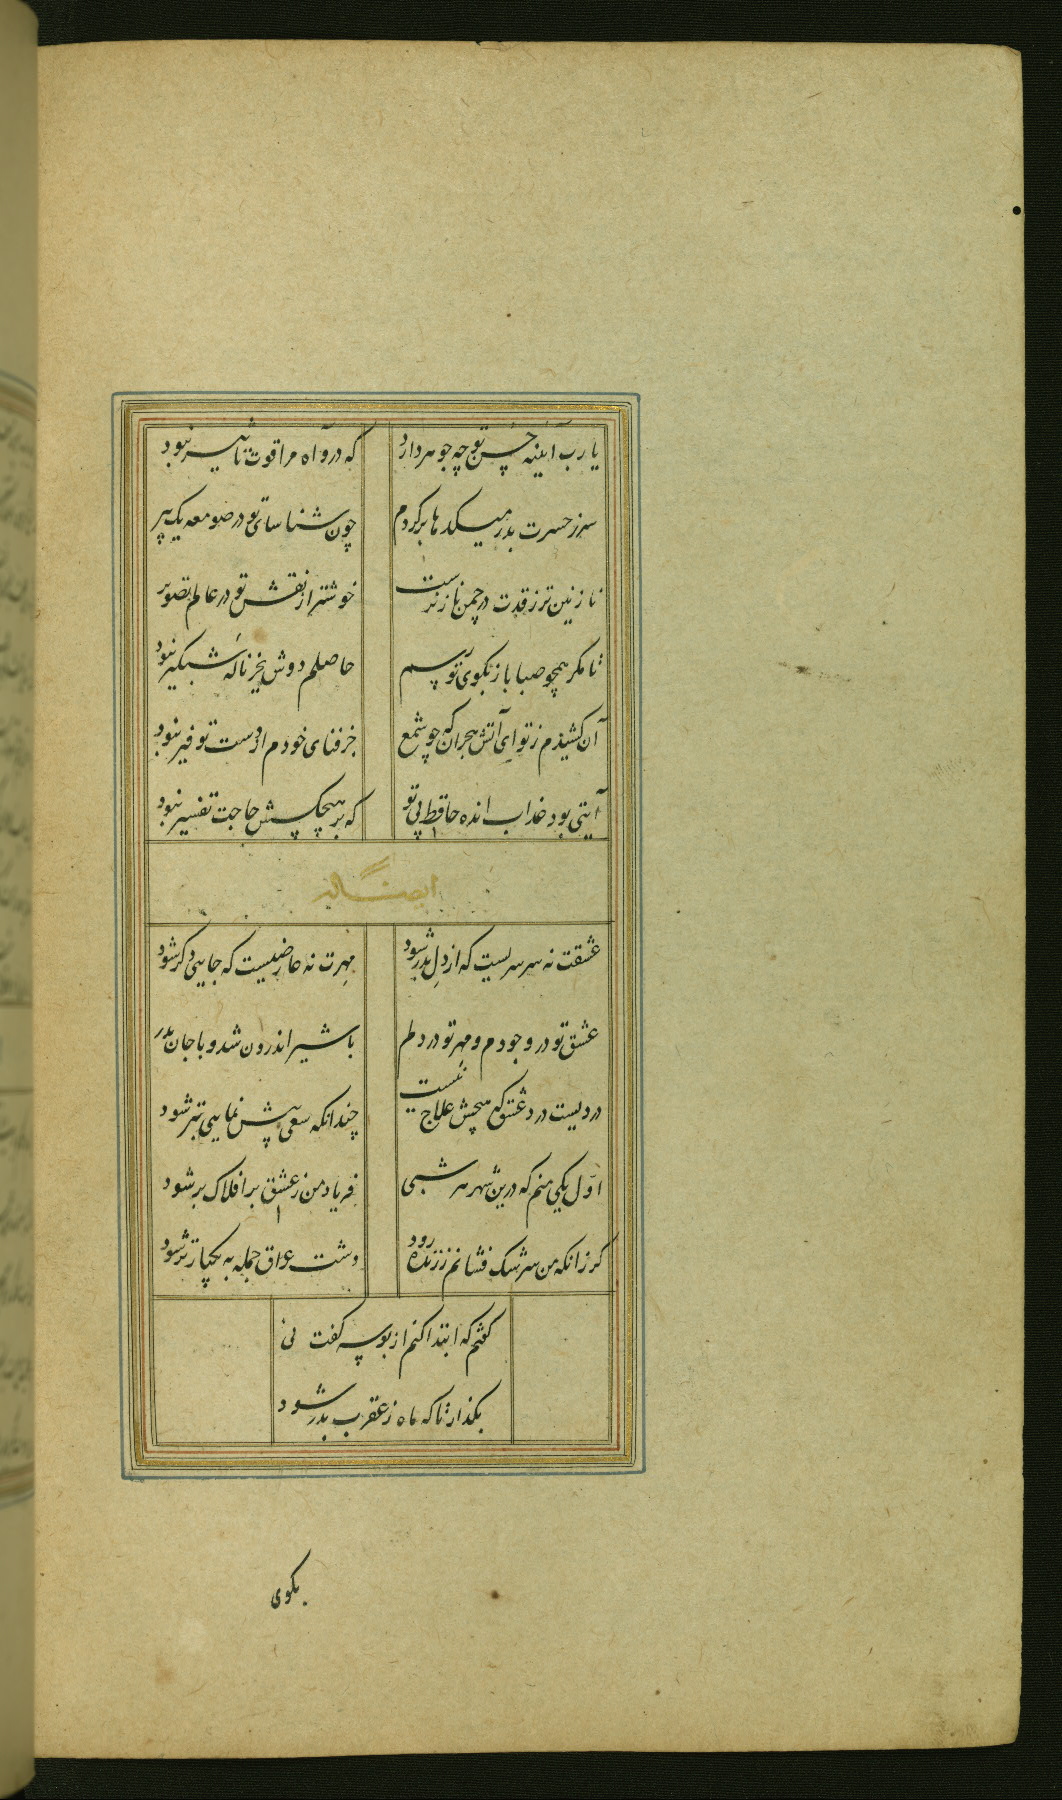 یا رب آینه حسن تو چه جوهر دارد که درو آه مرا قوت تاثیر نبود
سر ز حسرت بدر میکدها بر کردم چون شناسای تو در صومعه یک پیر
نازنین تر ز قدت در چمن ناز نرست خوشتر از نقش تو در عالم تصویر
تا مکر همچو صبا باز بکوی تو رسم حاصلم دوش بجز ناله شبکیر نبود
آن کشیدم ز تو ای آتش هجران که چو شمع جز فنای خودم از دست تو فیر نبود
آیتی بود عذاب انده حافظ بی تو که بر هیچکسش حاجت تفسیر نبود
ایضاله
عشقت نه سرسریست که از دل بدر شود مهرت نه عارضیست که جایی دکر شود
عشق تو در وجودم و مهر تو در دلم با شیر اندرون شد و با جان بدر
دردیست درد عشق که هیچش علاج نیست چندانکه سعی بیش نمایی بتر شود
اول یکی منم که درین شهر هر شبی فریاد من ز عشق بر افلاک بر شود
کر زانکه من سرشک فشانم ز زنده رود دشت عراق جمله به یکبار تر شود
کفتم که ابتدا کنم از بوسه کفت نی
بکذار تا که ماه ز عقرب بدر شود
بکوی